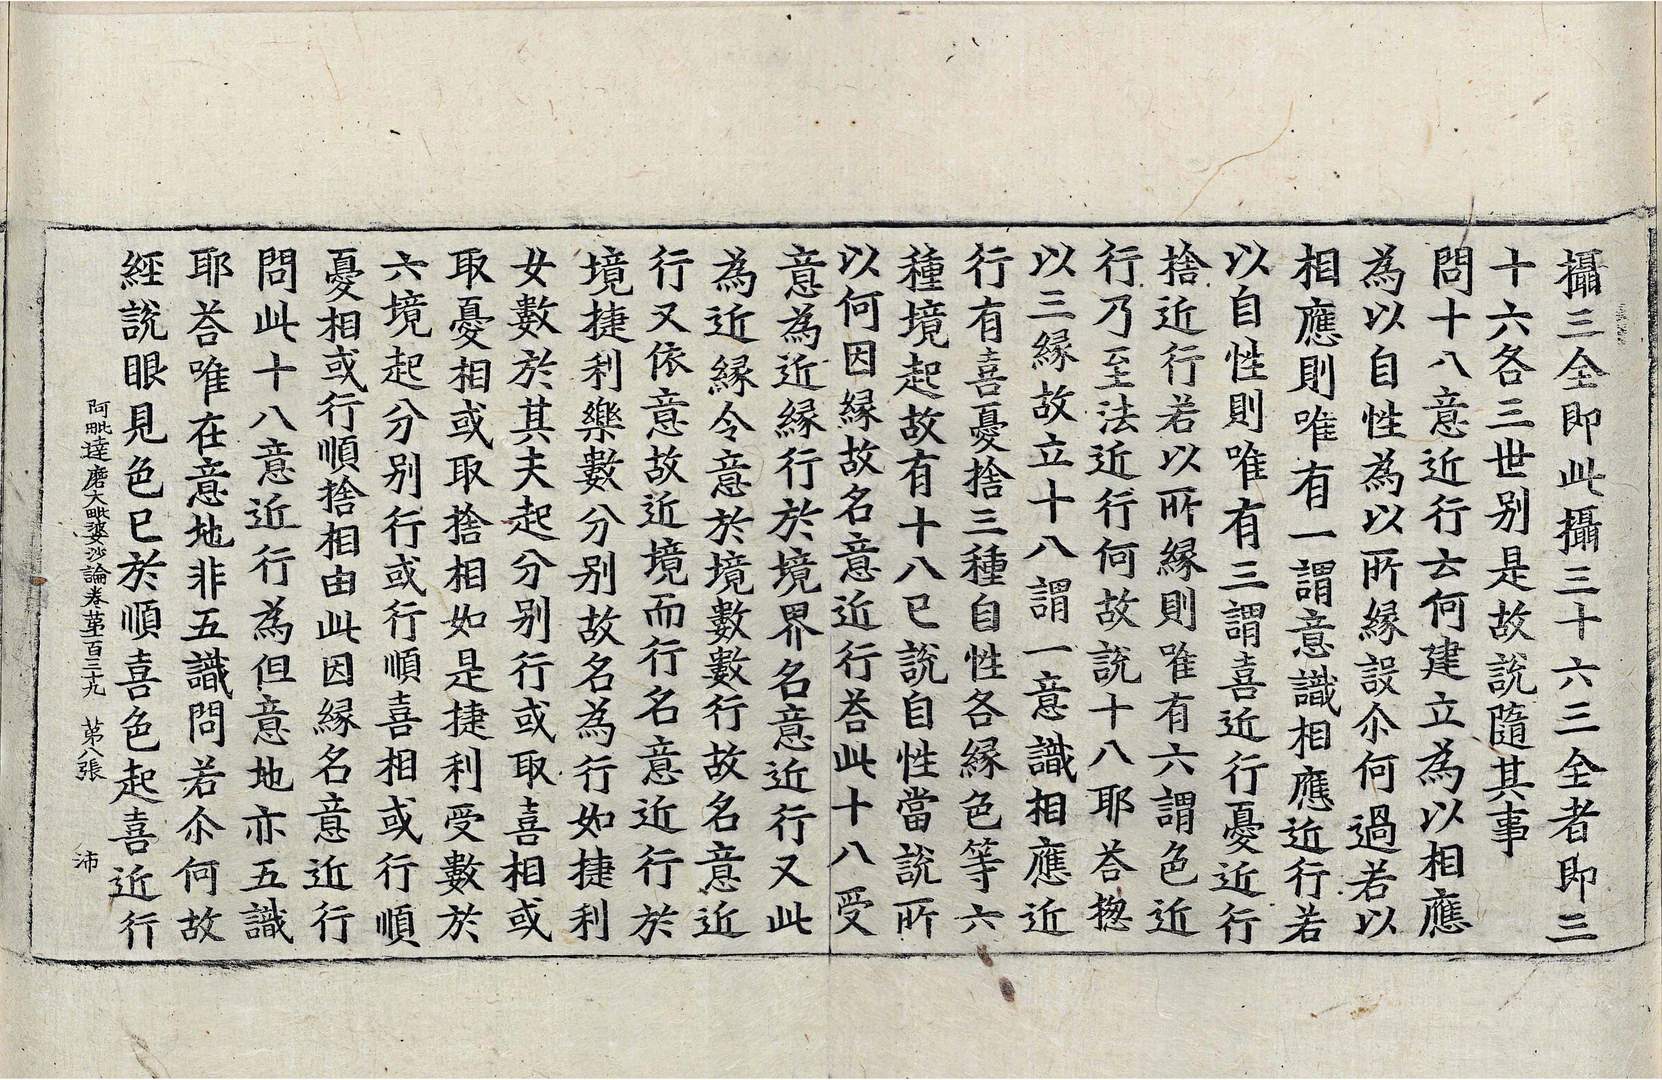 攝三全即此攝三十六三全者即三
十六各三世别是故說隨其事
問十八意近行云何建立為以相應
為以自性為以所緣設尒何過若以
相應則唯有一謂意識相應近行若
以自性則唯有三謂喜近行憂近行
捨近行若以所緣則唯有六謂色近
行乃至法近行何故說十八耶荅揔
以三緣故立十八謂一意識相應近
行有喜憂捨三種自性各緣色等六
種境起故有十八已說自性當說所
以何因緣故名意近行荅此十八受
意為近緣行於境界名意近行又此
為近緣令意於境數數行故名意近
行又依意故近境而行名意近行於
境捷利樂數分别故名為行如捷利
女數於其夫起分别行或取喜相或
取憂相或取捨相如是捷利受數於
六境起分别行或行順喜相或行順
憂相或行順捨相由此因緣名意近行
問此十八意近行為但意地亦五識
耶荅唯在意地非五識問若尒何故
經說眼見色已於順喜色起喜近行
阿毗達磨大毗婆沙論卷第一百三十九 第八張 沛